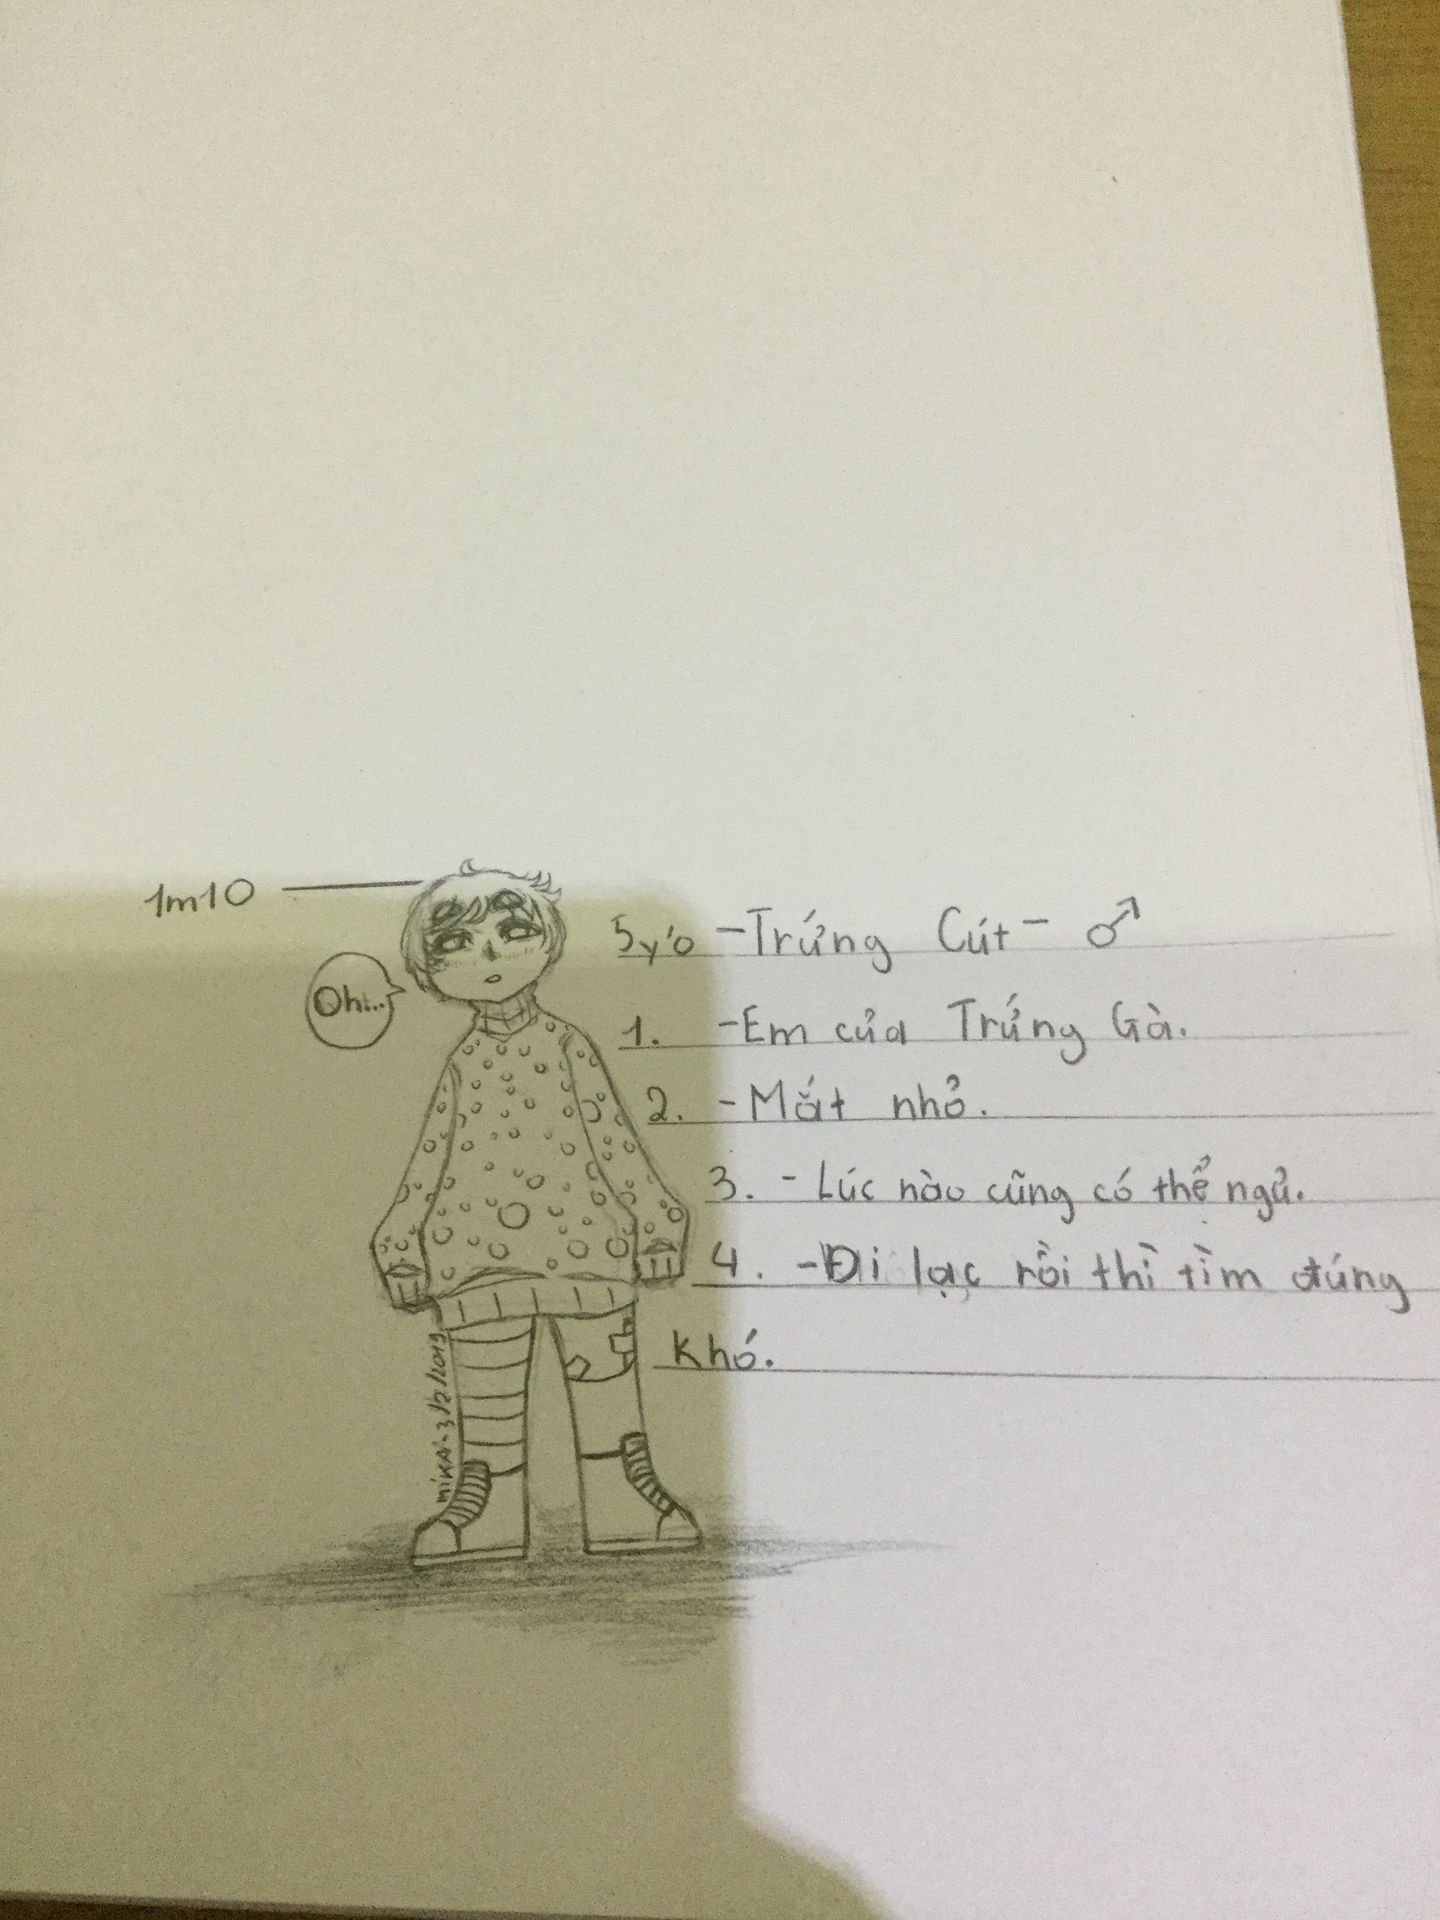 1m10
5y'o -Trứng Cút- ♂
Ohi...
1. -Em của Trứng Gà.
2. -Mắt nhỏ.
3. - Lúc nào cũng có thể ngủ.
4. -Đi lạc rồi thì tìm đúng
khó.
mikai-3/2/2019